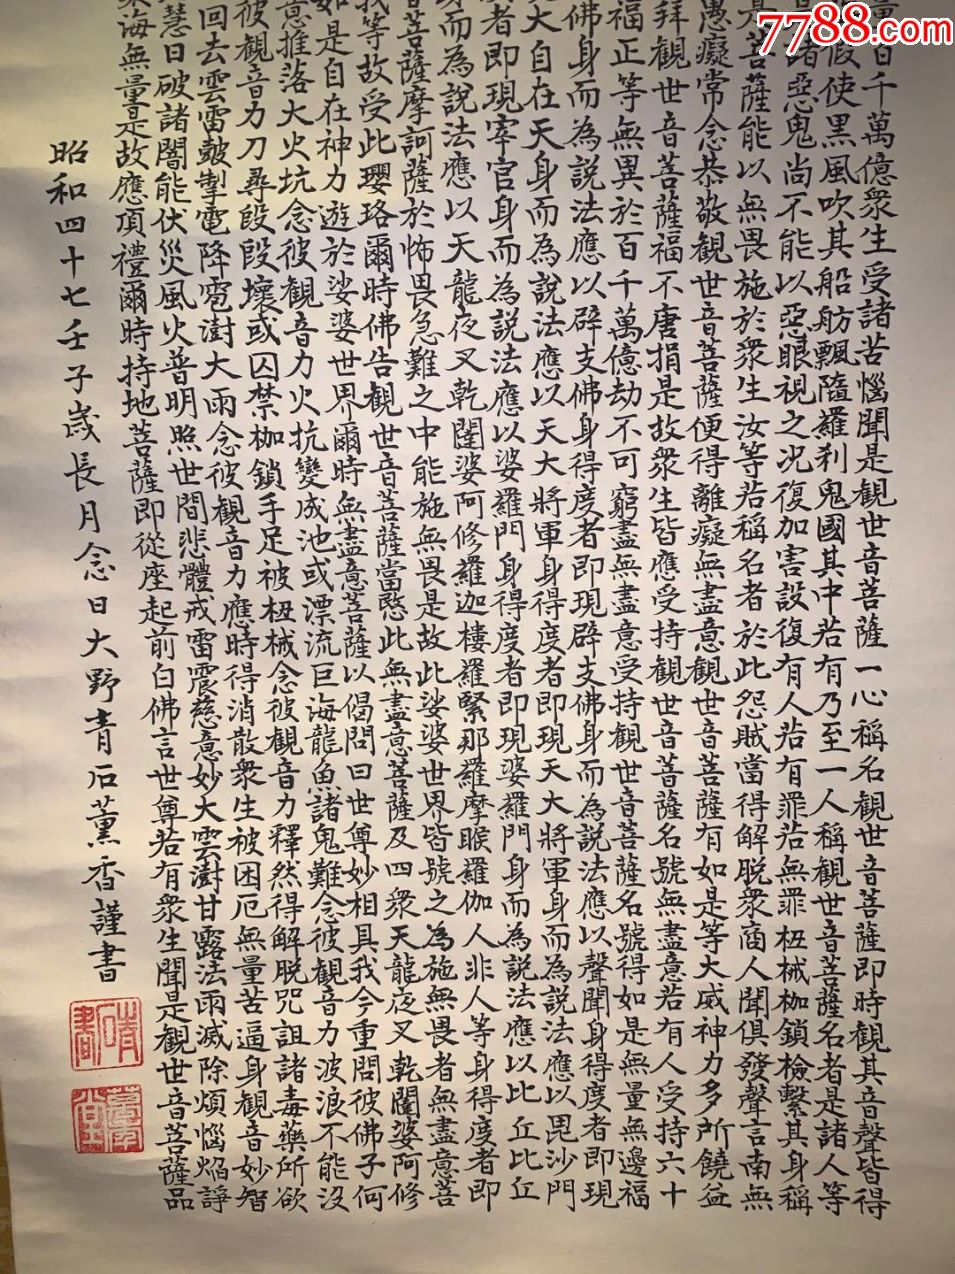 7788.com
量百千萬億衆生受諸苦惱聞是観世音菩薩一心稱名観世音菩薩即時観其音聲皆得
假使黒風吹其船舫飄隨羅刹鬼國其中若有乃至一人稱観世音菩薩名者是諸人等
諸惡鬼尚不能以惡眼視之况復加害設復有人若有罪若無罪杻械枷鎖檢繋其身稱
是菩薩能以無畏施於衆生汝等若稱名者於此怨賊當得解脱衆商人聞俱發聲言南無
愚癡常念恭敬観世音菩薩便得離癡無盡意観世音菩薩有如是等大威神力多所饒益
拜観世音菩薩福不唐捐是故衆生皆應受持観世音菩薩名號無盡意若有人受持六十
福正等無異於百千萬億劫不可窮盡無盡意受持観世音菩薩名號得如是無量無邊福
佛身而為説法應以辟支佛身得度者即現辟支佛身而為説法應以聲聞身得度者即現
大自在天身而為説法應以天大將軍身得度者即現天大將軍身而為説法應以毘沙門
者即現宰官身而為説法應以婆羅門身得度者即現婆羅門身而為説法應以比丘比丘
而為説法應以天龍夜叉乾闥婆阿修羅迦樓羅緊那羅摩睺羅伽人非人等身得度者即
菩薩摩訶薩於怖畏急難之中能施無畏是故此娑婆世界皆號之為施無畏者無盡意菩
我等故受此瓔珞爾時佛告観世音菩薩當愍此無盡意菩薩及四衆天龍夜叉乾闥婆阿修
如是自在神力遊於娑婆世界爾時無盡意菩薩以偈問曰世尊妙相具我今重問彼佛子何
意推落大火坑念彼観音力火抗變成池或漂流巨海龍魚諸鬼難念彼観音力波浪不能没
彼観音力刀尋段段壞或囚禁枷鎖手足被杻械念彼観音力釋然得解脱咒詛諸毒藥所欲
回去雲雷皷掣電降雹澍大雨念彼観音力應時得消散衆生被困厄無量苦逼身観音妙智
慧日破諸闇能伏災風火普明照世間悲體戒雷震慈意妙大雲澍甘露法雨滅除煩惱焰諍
海無量是故應頂禮爾時持地菩薩即從座起前白佛言世尊若有衆生聞是観世音菩薩品
昭和四十七壬子歳長月念日大野青石薰香謹書